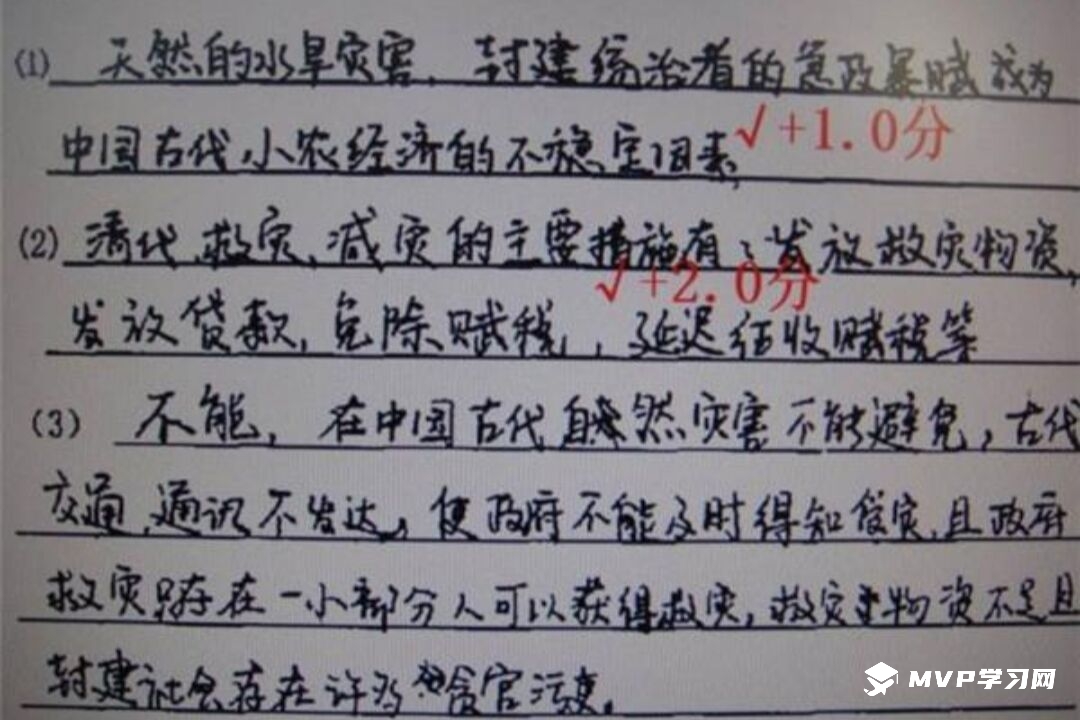 (1) 天然的水旱灾害，封建统治者的急政暴赋成为
中国古代小农经济的不稳定因素，
√+1.0分
(2) 清代救灾、减灾的主要措施有：发放救灾物资，
√+2.0分
发放贷款，免除赋税，延迟征收赋税等
(3) 不能，在中国古代自然灾害不能避免，古代
交通、通讯不发达，使政府不能及时得知灾，且政府
救灾只存在一小部分人可以获得救灾，救灾物资不足且
封建社会存在许多贪官污吏。
MVP学习网